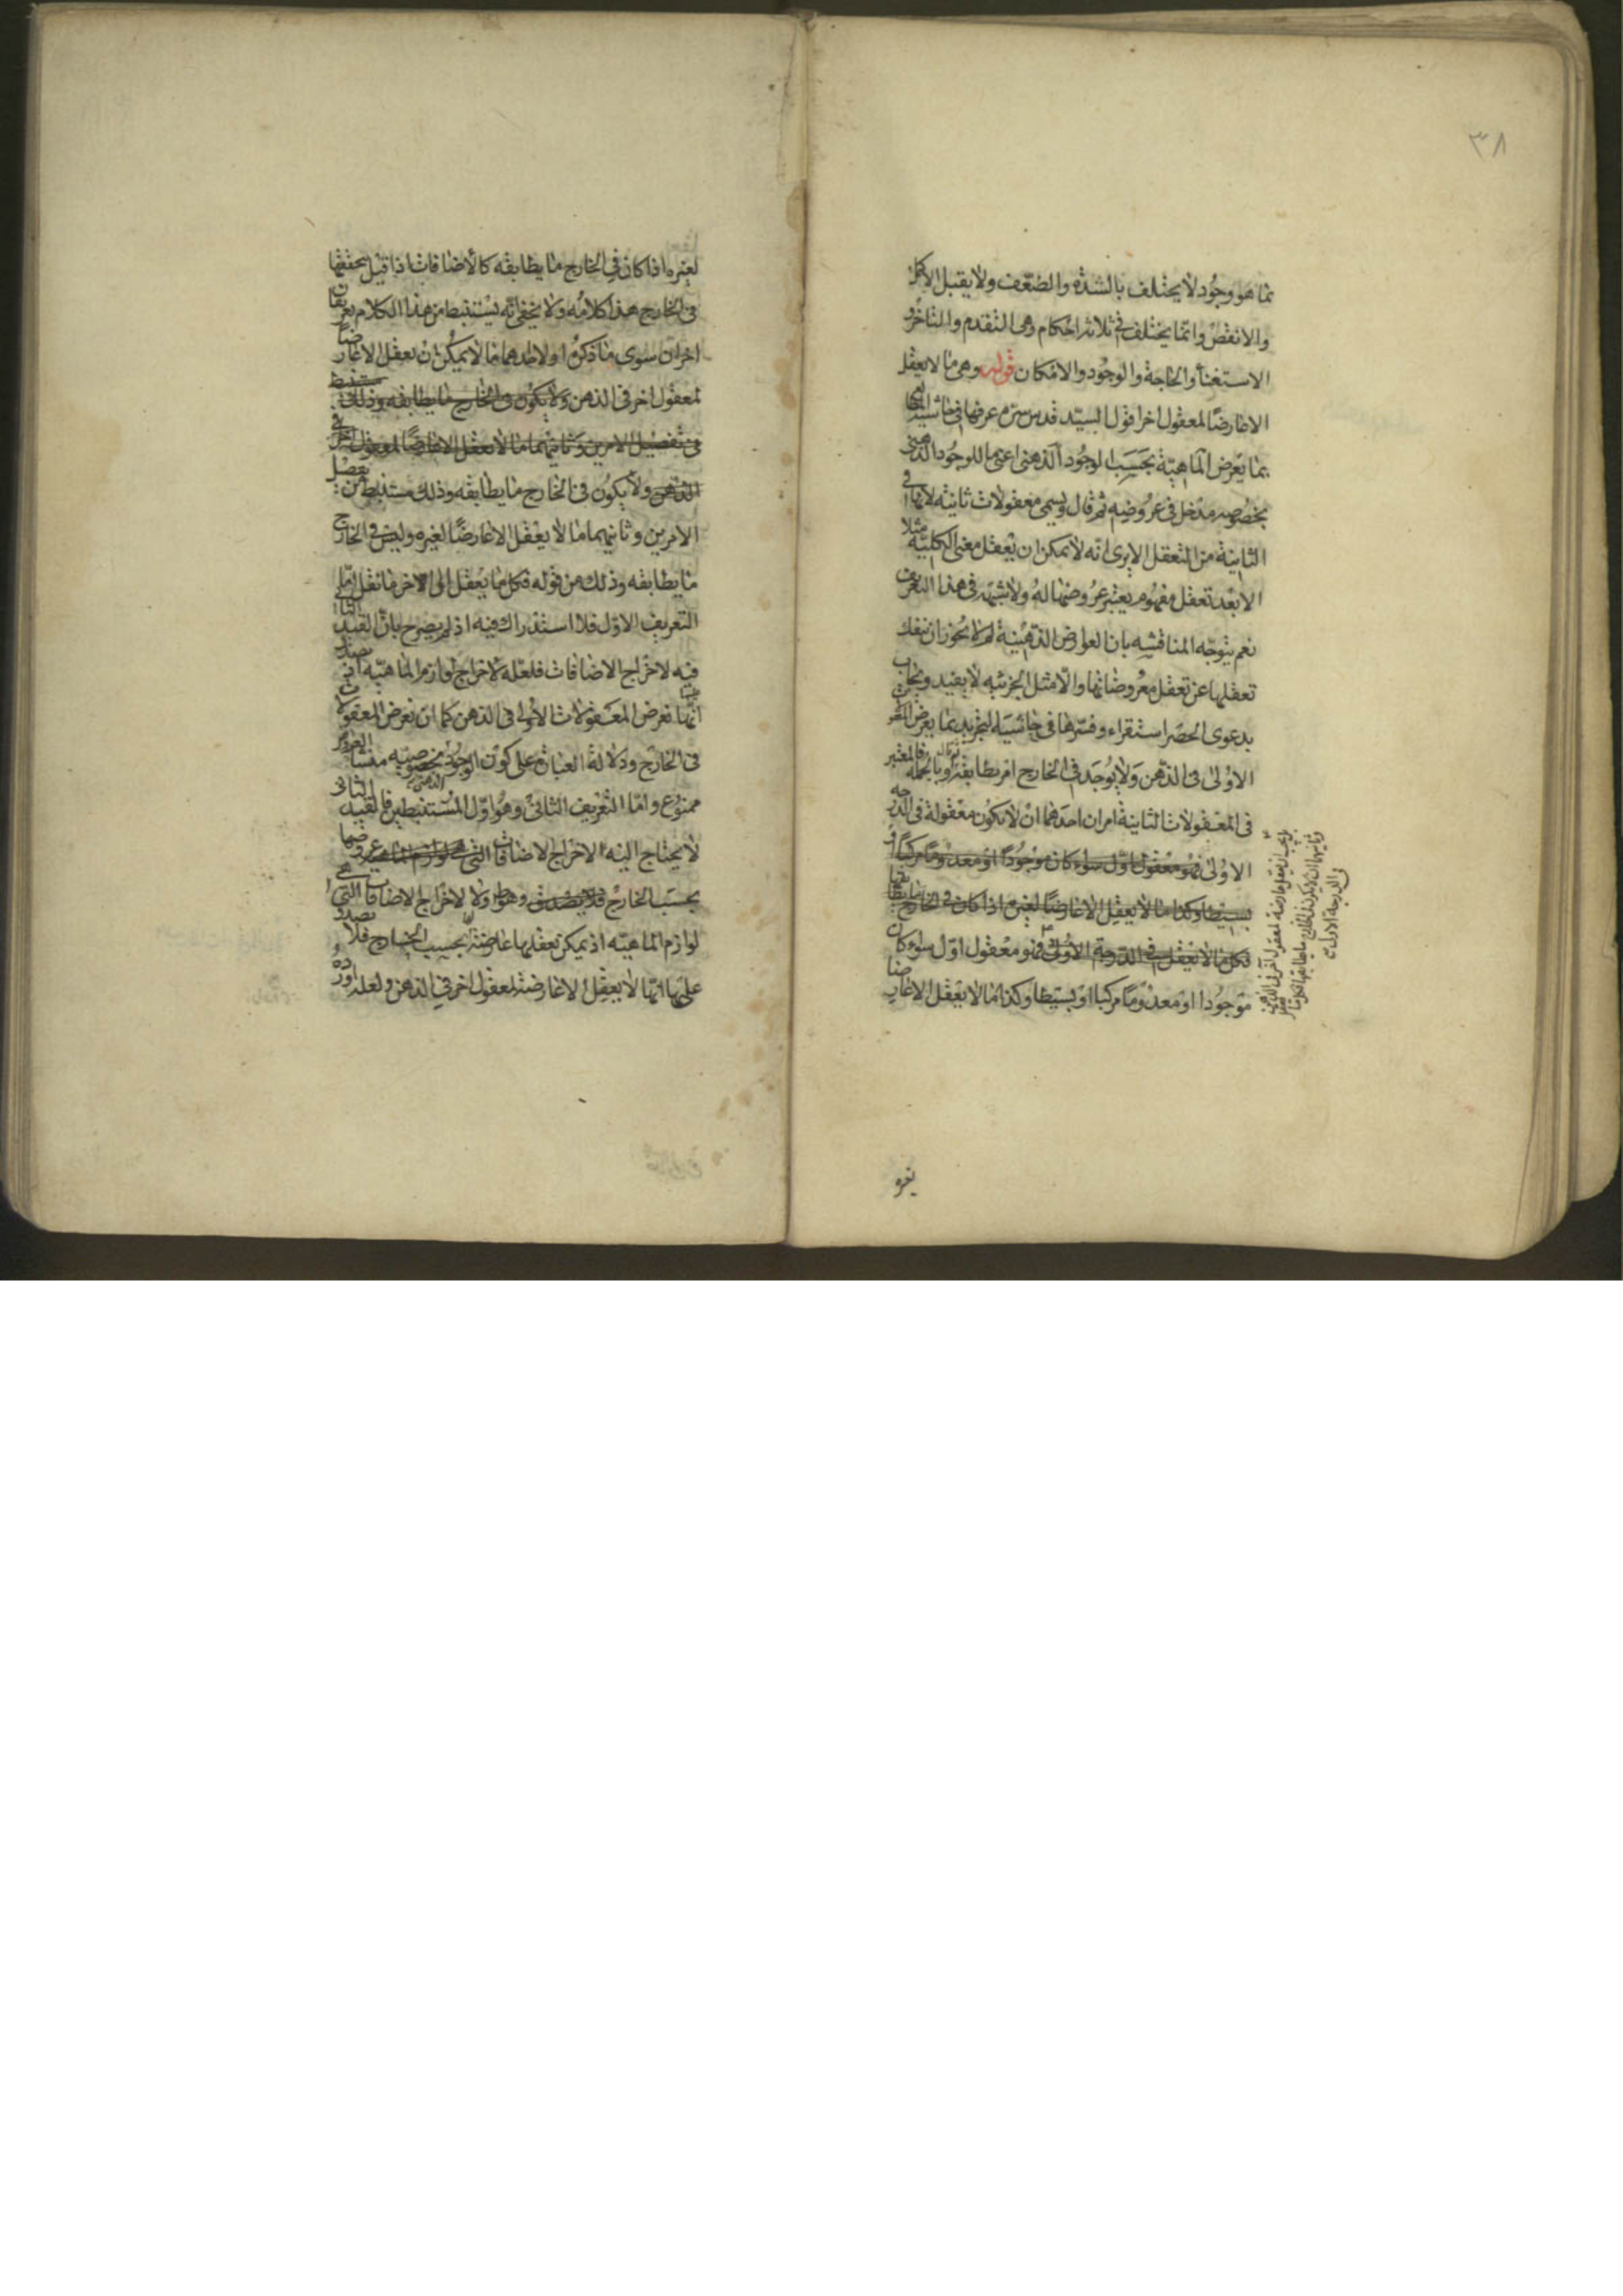 ٣٨
بما هو وجود لا يختلف بالشدة والضعف ولا يقبل الاكمل
والانقص وانما يختلف في ثلاثة احكام وهى التقدم والتاخر و
الاستغنا والحاجة والوجود والامكان قوله وهى ما لا يعقل
الا عارضا لمعقول اخر اقول السيد قدس سره عرفها في حاشية
بما يعرض الماهية بحسب الوجود الذهنى اعنى ما للوجود الذهنى
بخصوصه مدخل في عروضه ثم قال ويسمى معقولات ثانية لانها في
الثانية من التعقل الا يرى انه لا يمكن ان يعقل معنى الكلية مثلا
الا بعد تعقل مفهوم يعتبر عروضها له ولا شبهة في هذا التعريف
نعم يتوجه المناقشة بان العوارض الذهنية لم لا يجوز ان ينفك
تعقلها عن تعقل معروضاتها والامثل الجزئية لا يفيد ويجاب
بدعوى الحصر استقراء وفسرها في حاشية التجريد بما يعرض المعقولات
الاولى في الذهن ولا يوجد في الخارج امر يطابقه وبالجملة فالمعتبر
في المعقولات الثانية امران احدهما ان لا يكون معقولة في الدرجة
الاولى فهو معقول اول سواء كان موجودا او معدوما مركبا او
بسيطا وكذا ما لا يعقل الا عارضا لغيره اذا كان في الخارج ما يطابقها
فكل ما لا يعقل في الدرجة الاولى فهو معقول اول سواء كان
موجودا او معدوما مركبا او بسيطا وكذا ما لا يعقل الا عارضا
لغيره
لغيره اذا كان في الخارج ما يطابقه كالاضافات اذا قيل بتحققها
في الخارج هذا كلامه ولا يخفى انه يستنبط من هذا الكلام تعريفان
اخران سوى ما ذكره اولا احدهما ما لا يمكن ان يعقل الا عارضا
لمعقول اخر في الذهن ولا يكون في الخارج ما يطابقه وذلك مستنبط
من تفصيل الامرين وثانيهما ما لا يعقل الا عارضا لمعقول اخر في
الذهن ولا يكون في الخارج ما يطابقه وذلك مستنبط من تفصيل
الامرين وثانيهما ما لا يعقل الا عارضا لغيره وليس في الخارج
ما يطابقه وذلك من قوله فكل ما يعقل الى الاخر ما نقل اما
التعريف الاول فلا استدراك فيه اذ لم يصرح بان القيد الثانى
فيه لاخراج الاضافات فلعله لاخراج لوازم الماهية اذ يصدق
انها تعرض المعقولات الاولى في الذهن كما ان تعرض المعقولات
في الخارج ودلالة العبارة على كون الوجود الذهنى بخصوصيته منشأ العروض
ممنوع واما التعريف الثانى وهو اول المستنبطين فالقيد الثانى
لا يحتاج اليه الا لاخراج الاضافات التى عروضها
بحسب الخارج وهو ولا لاخراج الاضافات التى هى
لوازم الماهية اذ يمكن تعقلها عارضة بحسب الخارج فلا يصدق
عليها انها لا يعقل الا عارضة لمعقول اخر في الذهن ولعله اورده